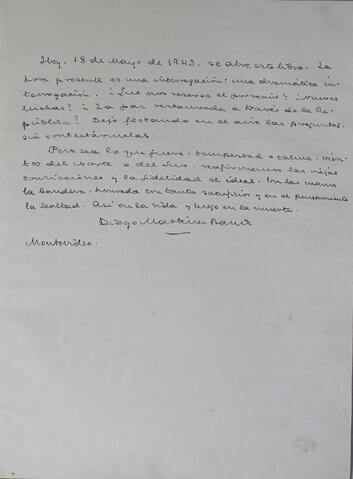 Hoy, 18 de Mayo de 1943, se abre este libro. La
hora presente es una interrogación: una dramática in-
terrogación. ¿Qué nos reserva el porvenir? ¿Nuevas
luchas? ¿La paz restaurada a través de la Re-
pública? Dejo flotando en el aire las preguntas,
sin contestármelas.
Pero sea lo que fuere, tempestad o calma, vien-
tos del Norte o del Sur, reafirmemos las viejas
convicciones y la fidelidad al ideal. En las manos
la bandera, honrada con tanto sacrificio y en el pensamiento
la lealtad. Así en la vida y luego en la muerte.
Diego Martínez Barrio
Montevideo.